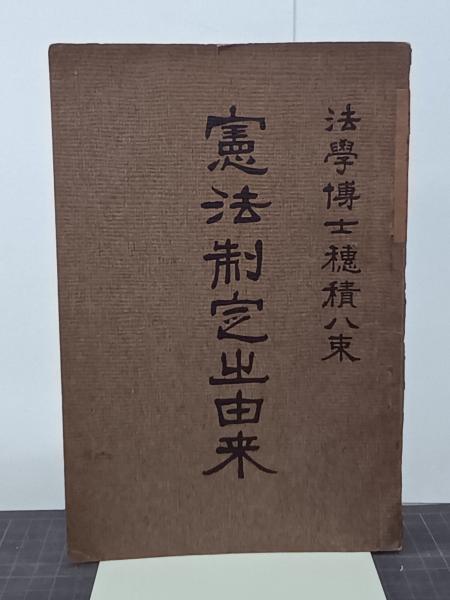 法學博士穗積八束
憲法制定之由来